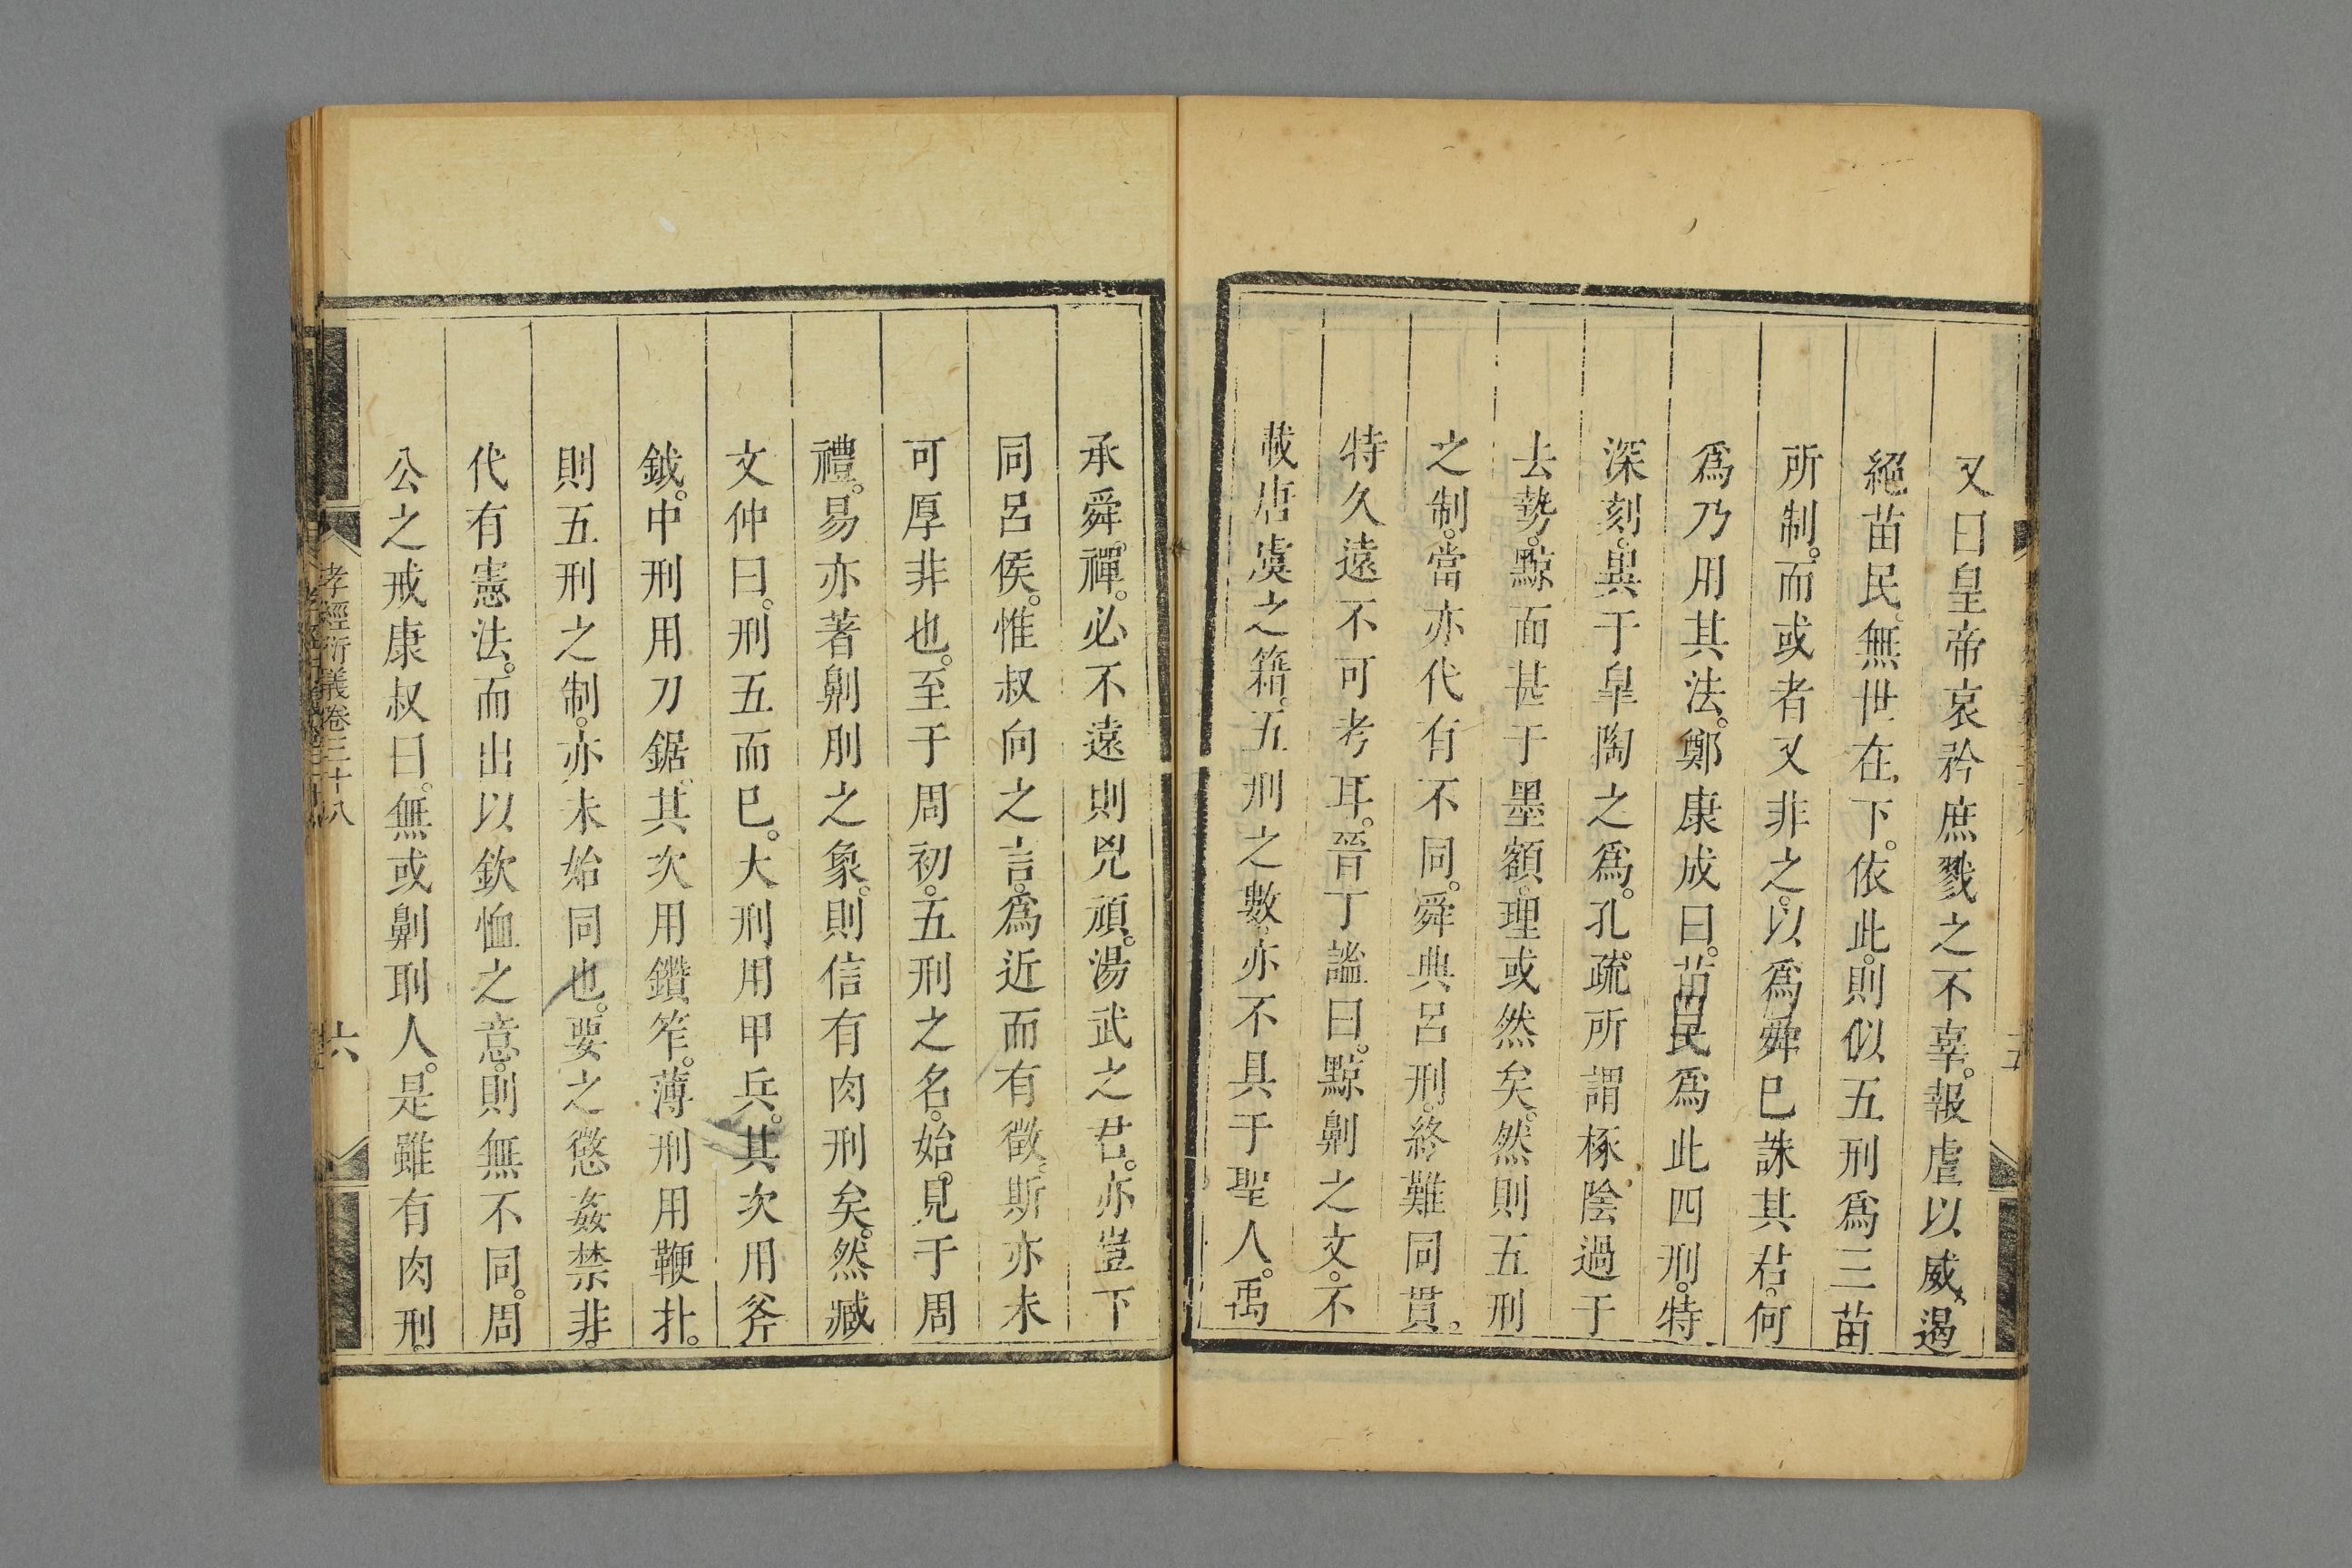 又曰皇帝哀矜庶戮之不辜。報虐以威。遏
絕苗民。無世在下。依此。則似五刑爲三苗
所制。而或者又非之。以爲舜已誅其君。何
爲乃用其法。鄭康成曰。苗民爲此四刑。特
深刻。異于臯陶之爲。孔疏所謂椓陰過于
去勢。黥面甚于墨額。理或然矣。然則五刑
之制。當亦代有不同。舜典呂刑。終難同貫。
特久遠不可考耳。晉丁謐曰。黥劓之文。不
載唐虞之籍。五刑之數。亦不具于聖人。禹
承舜禪。必不遠則兇頑。湯武之君。亦豈下
同呂侯。惟叔向之言。爲近而有徵。斯亦未
可厚非也。至于周初。五刑之名。始見于周
禮。易亦著劓刖之象。則信有肉刑矣。然臧
文仲曰。刑五而已。大刑用甲兵。其次用斧
鉞。中刑用刀鋸。其次用鑽笮。薄刑用鞭扑。
則五刑之制。亦未始同也。要之懲姦禁非。
代有憲法。而出以欽恤之意。則無不同。周
公之戒康叔曰。無或劓刵人。是雖有肉刑。
孝經衍義卷三十八
六